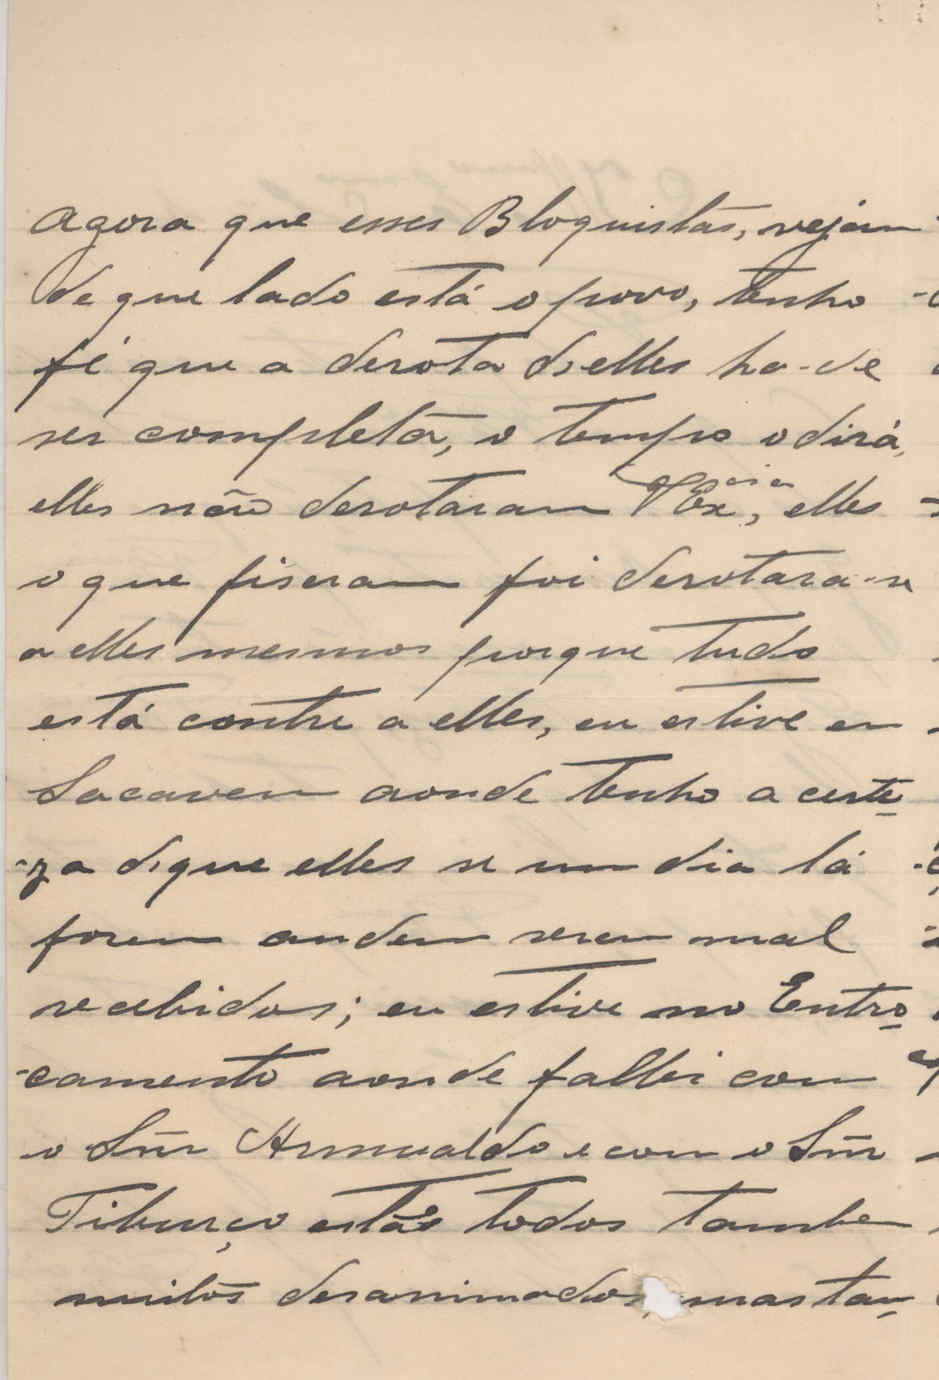 Agora que esses Bloquistas, vejam
de que lado está o povo, tenho
fé que a derota d'elles ha-de
ser completa, o tempo o dirá,
elles não derotaram VExcia, elles
o que fiseram foi derotara-se
a elles mesmos porque tudo
está contre a elles, eu estive en
Sacavem aonde tenho a certe
-za de que elles se um dia lá
forem andem serem mal
recebidos; eu estive no Entro
-camento aonde fallei com
o Snr Armualdo e com o Snr
Tiburço estão todos tambem
muitos desanimados, mas tan